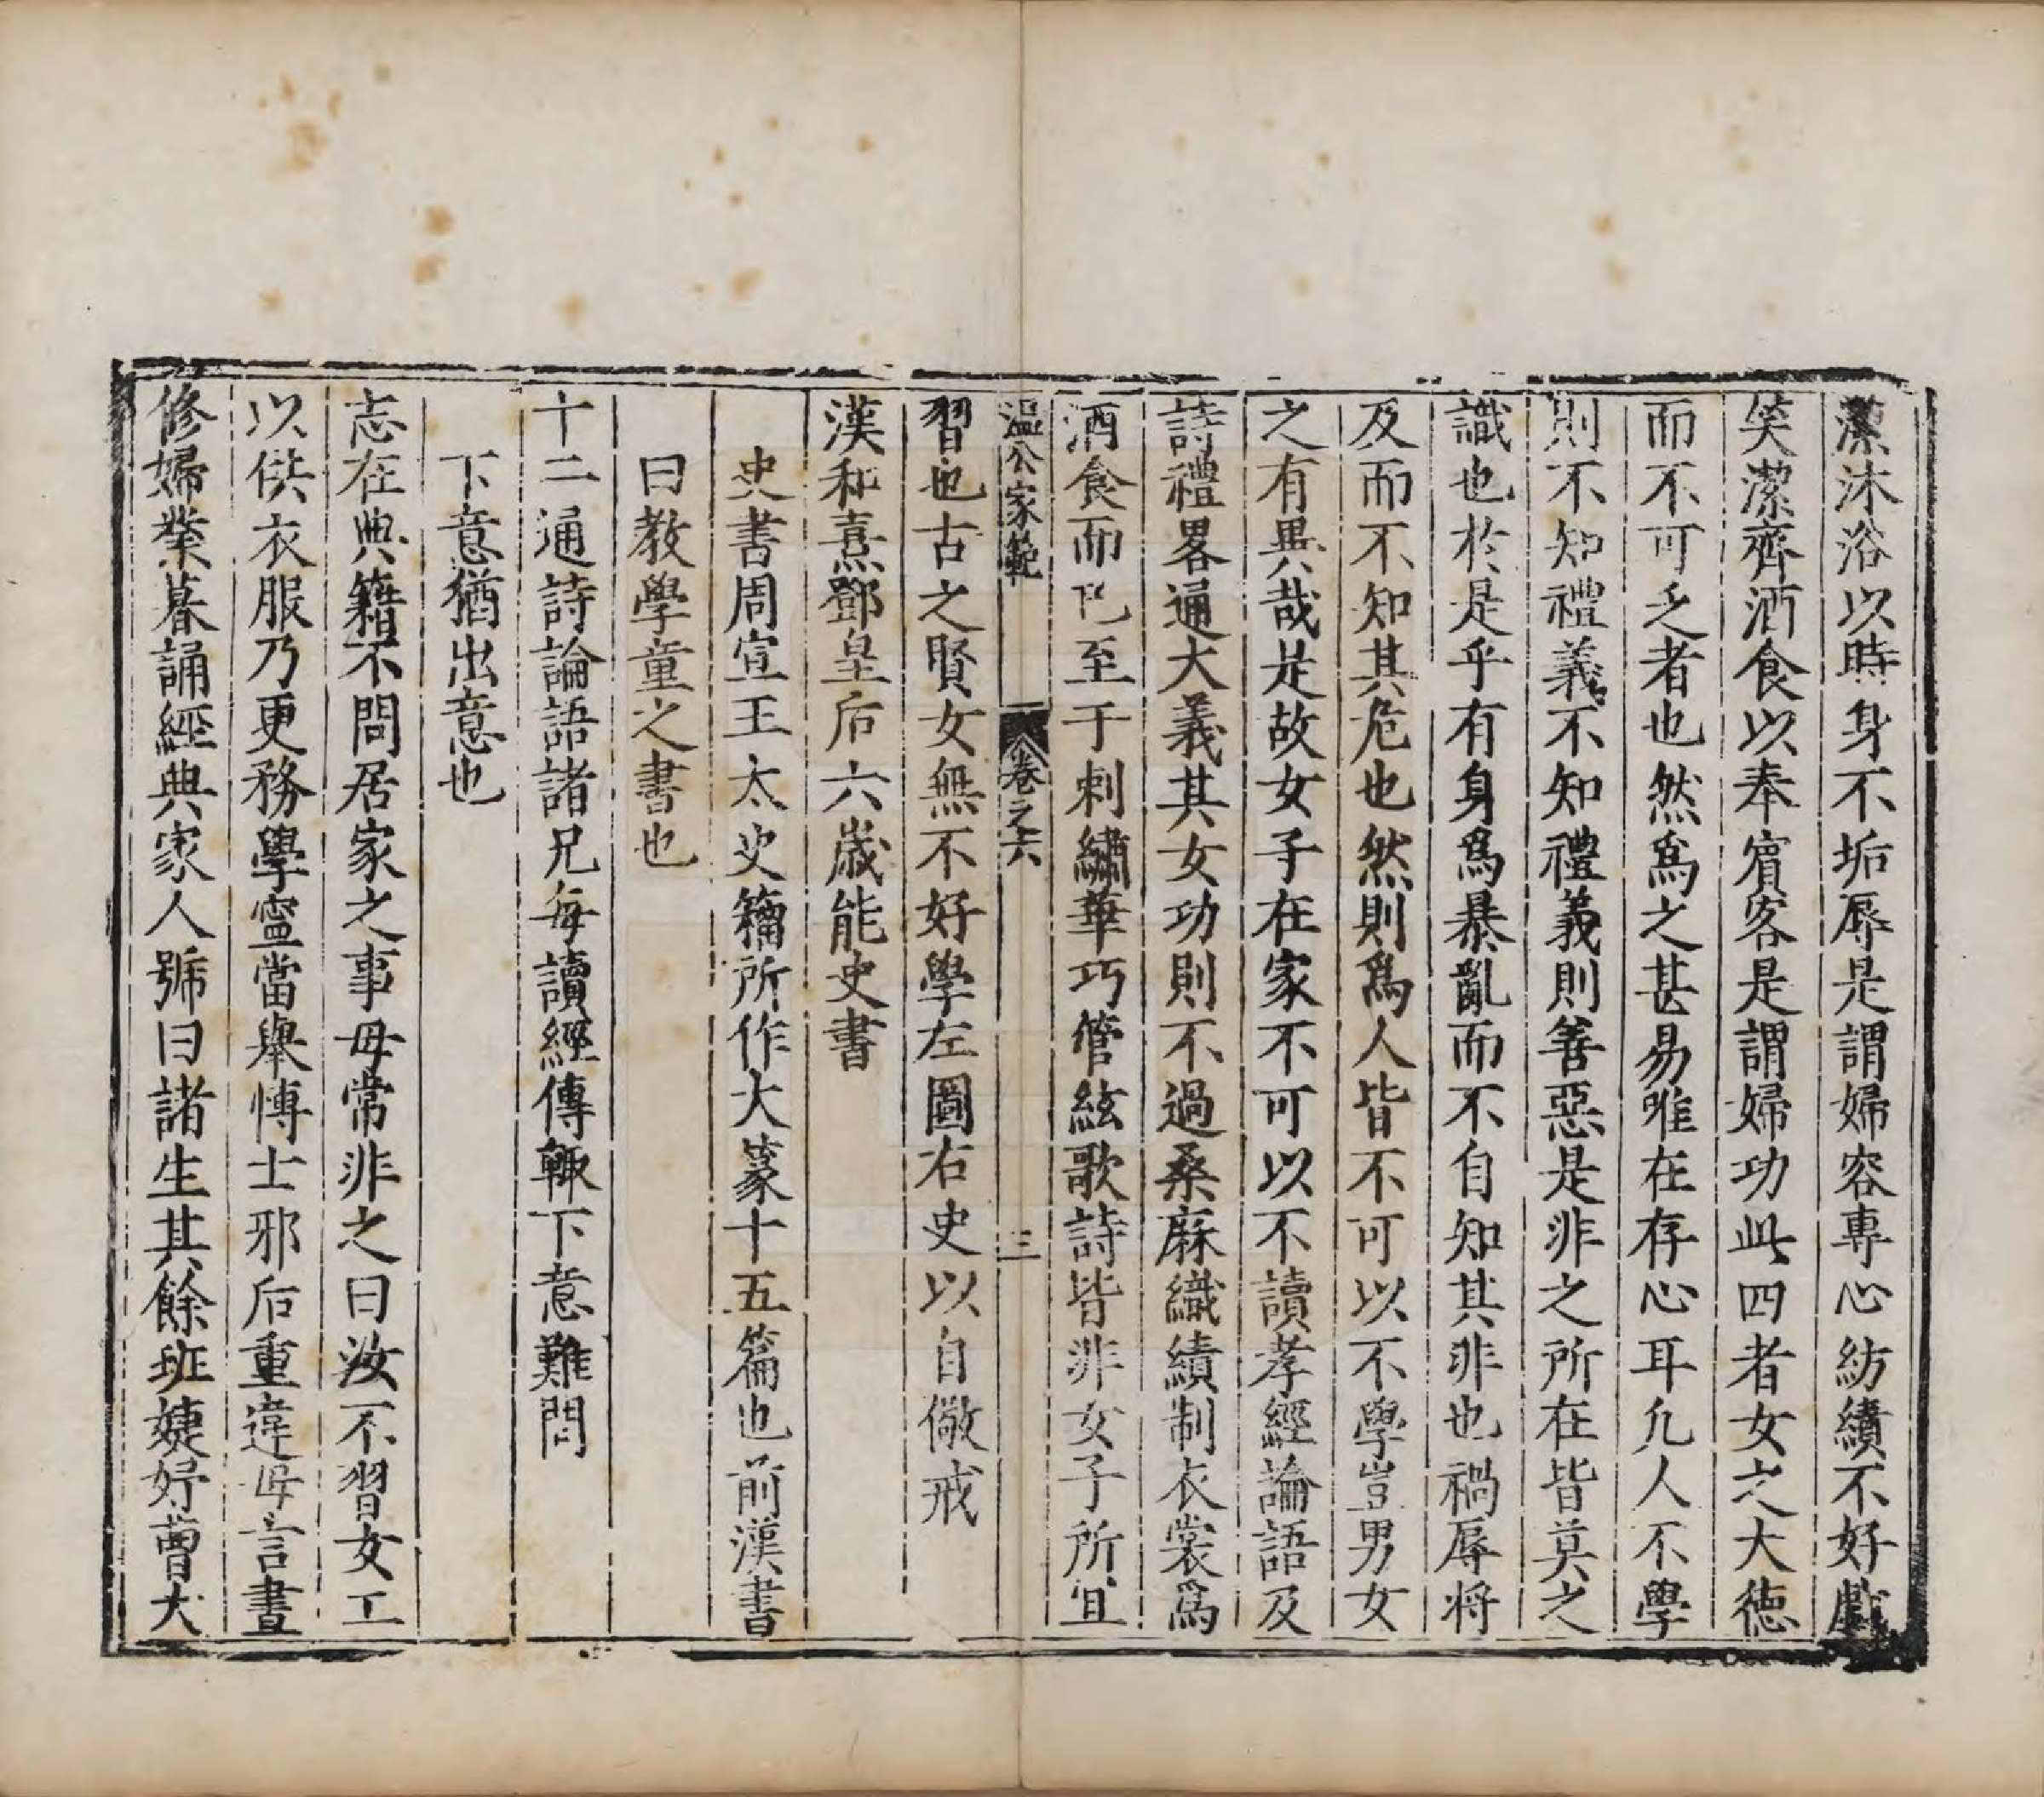 潔沐浴以時身不垢辱是謂婦容專心紡績不好戲
笑潔齊酒食以奉賓客是謂婦功此四者女之大徳
而不可乏者也然爲之甚易唯在存心耳凢人不學
則不知禮義不知禮義則善惡是非之所在皆莫之
識也於是乎有身爲暴亂而不自知其非也禍辱将
及而不知其危也然則爲人皆不可以不學豈男女
之有異哉是故女子在家不可以不讀孝經論語及
詩禮畧通大義其女功則不過桑麻織績制衣裳爲
酒食而巳至于刺繡華巧管絃歌詩皆非女子所宜
温公家範 卷之六 三
習也古之賢女無不好學左圖右史以自儆戒
漢和熹鄧皇后六歲能史書
史書周宣王太史籀所作大篆十五篇也前漢書
曰教學童之書也
十二通詩論語諸兄每讀經傳輙下意難問
下意猶出意也
志在典籍不問居家之事母常非之曰汝不習女工
以供衣服乃更務學寧當舉博士邪后重違母言晝
修婦業暮誦經典家人號曰諸生其餘班婕妤曹大